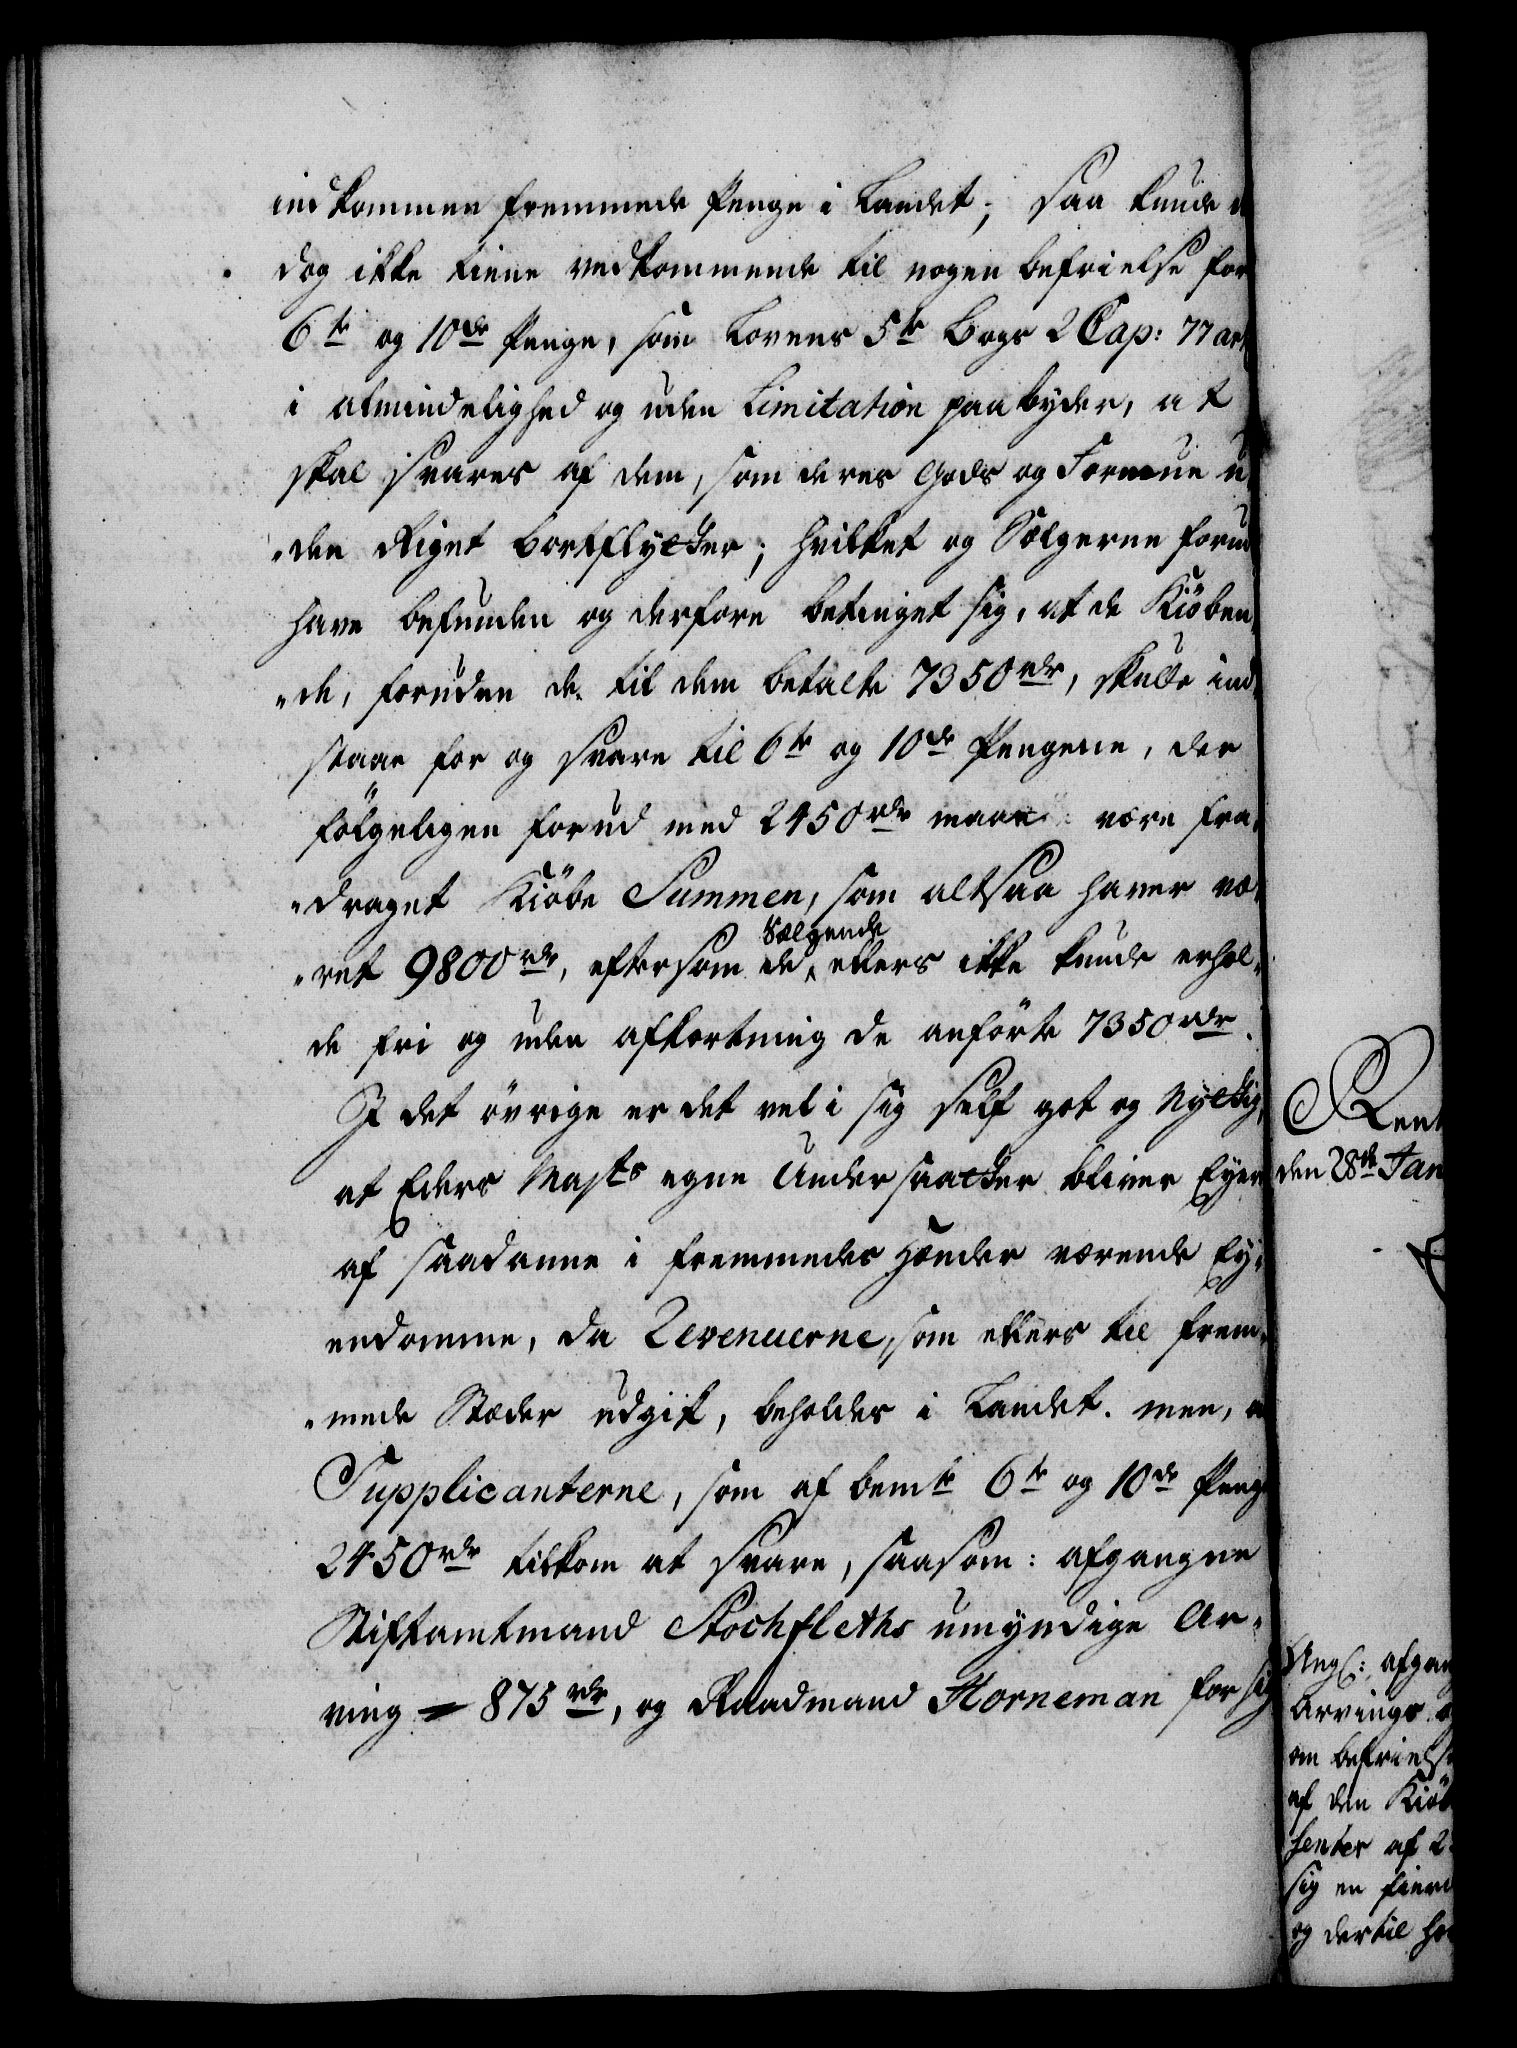 indkommen fremmede Penge i Landet; saa kunde
dog ikke tiene vedkommende til nogen befrielse for
6te og 10de Penge, som Lovens 5te Bogs 2 Cap: 77 art
i almindelighed og uden Limitation paabyder, at
skal svares af dem, som deres Gods og Formue u„
„den Riget bortflytter; hvilket og Sælgerne forud
have befunden og derfore betinget sig, at de Kiöben„
„de, foruden de til dem betalte 7350 rdr, skulle ind
staae for og svare til 6te og 10de Pengene, der
fölgeligen forud med 2450 rdr maae være fra„
„draget Kiöbe Summen, som altsaa haver væ„
„ret 9800 rdr, eftersom de Sælgende ellers ikke kunde erhol„
de fri og uden afkortning de anförte 7350 rdr.
I det övrige er det vel i sig self got og Nyttig,
at Eders Mayts egne Undersaatter bliver Eyere
af saadanne i fremmedes Hænder værende Ey„
endomme, da Revenuerne, som ellers til frem„
„mede Stæder udgik, beholdes i Landet. men,
Supplicanterne, som af bemte 6te og 10de Penge
2450 rdr tilkom at svare, saasom: afgangne
Stiftamtmand Stochfleths umyndige Ar„
ving 875 rdr, og Raadmand Horneman for sig
Rent
den 28de Jan
Angl: afgan
Arvings og
om befrielse
af den Kiöb
sentes af 2
sig en fierd
og dertil